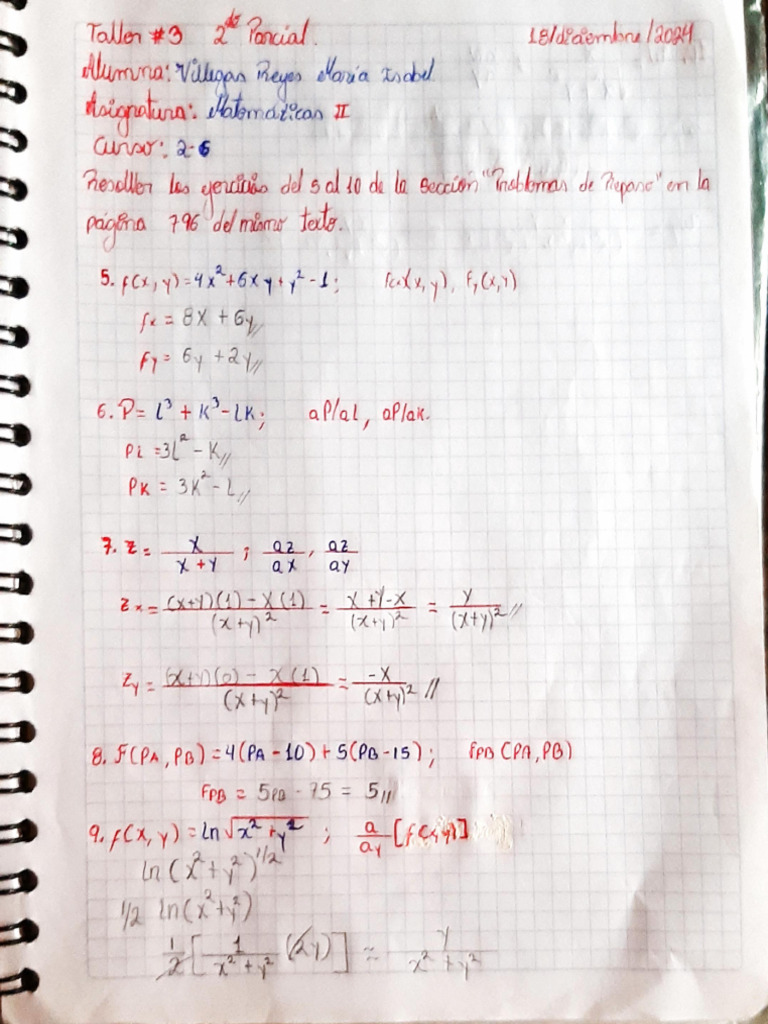 Taller #3 2do Parcial. 18/diciembre/2024
Alumna: Villegas Reyes María Isabel
Asignatura: Matemáticas II
Curso: 2-6
Resolver los ejercicios del 5 al 10 de la sección "Problemas de Repaso" en la
página 796 del mismo texto.
5. f(x,y)=4x²+6xy+y²-1; fx(x,y), Fy(x,y)
fx = 8x + 6y//
Fy = 6y + 2y//
6. P= L³ + K³-LK; aP/aL, aP/aK.
PL =3L² - K//
PK = 3K² - L//
7. z = x/(x+y) ; az/ax , az/ay
zx = ((x+y)(1) - x(1))/(x+y)² = (x+y-x)/(x+y)² = y/(x+y)² //
zy = ((x+y)(0) - x(1))/(x+y)² = -x/(x+y)² //
8. F(PA,PB)=4(PA-10)+5(PB-15); FPB(PA,PB)
FPB = 5PB - 75 = 5//
9. f(x,y)=ln√(x²+y²) ; a/ay [f(x,y)]
ln(x²+y²)^1/2
1/2 ln(x²+y²)
1/2 [1/(x²+y²) (2y)] = y/(x²+y²)